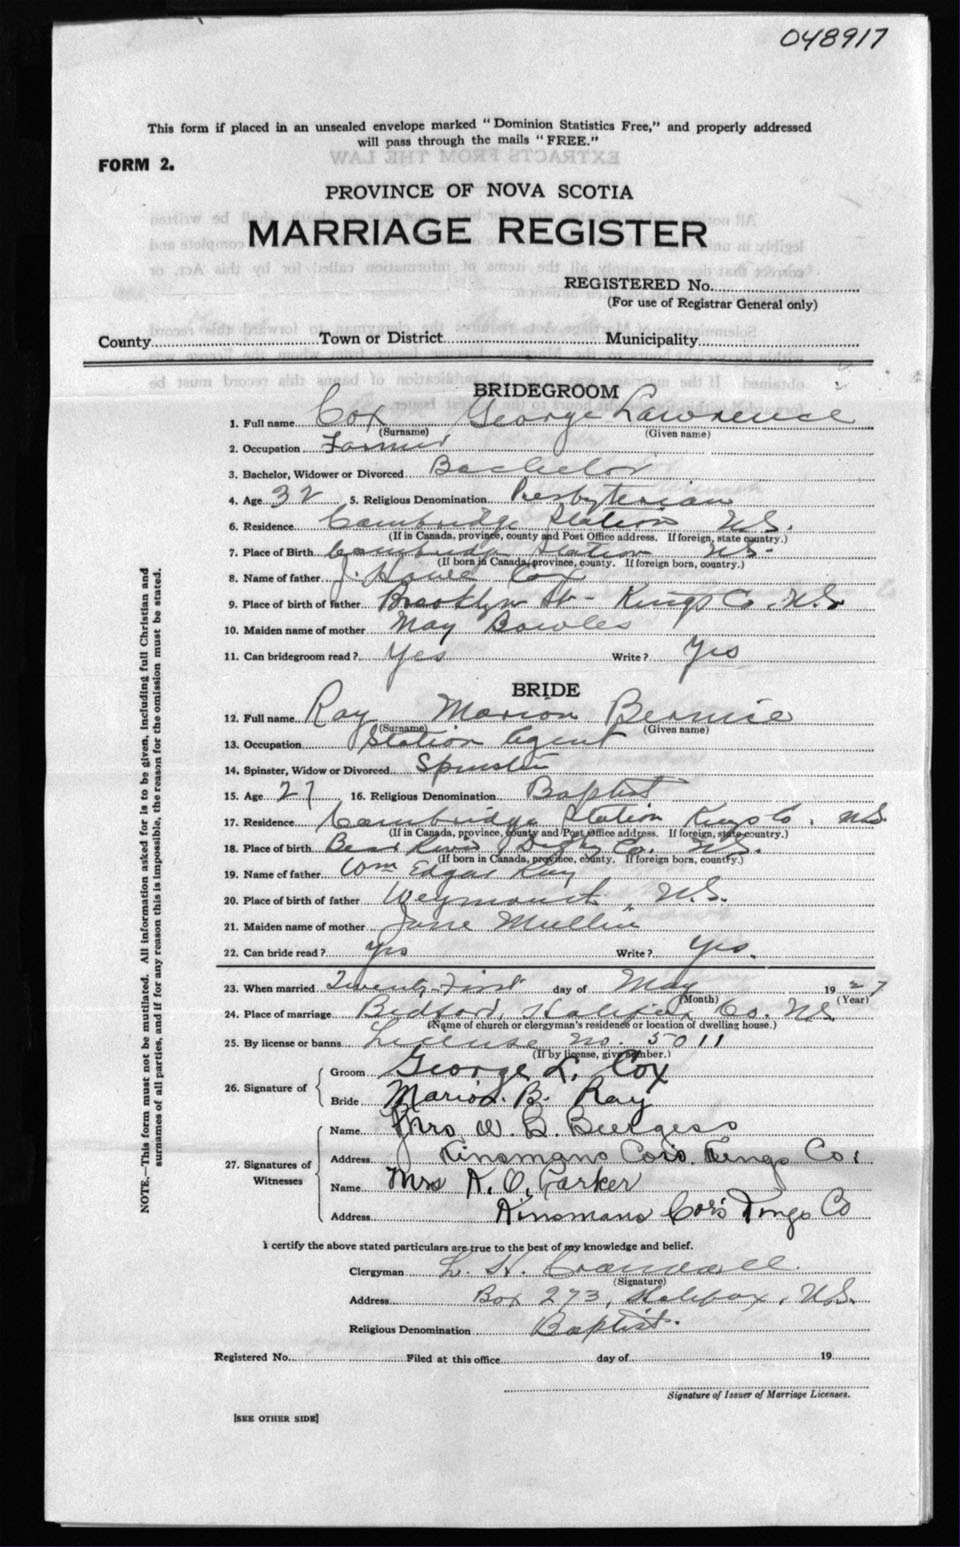 048917
This form if placed in an unsealed envelope marked "Dominion Statistics Free," and properly addressed
will pass through the mails "FREE."
FORM 2.
PROVINCE OF NOVA SCOTIA
MARRIAGE REGISTER
REGISTERED No.
(For use of Registrar General only)
County Town or District Municipality
BRIDEGROOM
1. Full name Cox George Lawrence
(Surname) (Given name)
2. Occupation Farmer
3. Bachelor, Widower or Divorced Bachelor
4. Age 32 5. Religious Denomination Presbyterian
6. Residence Cambridge Station N.S.
(If in Canada, province, county and Post Office address. If foreign, state country.)
7. Place of Birth Cambridge Station N.S.
(If born in Canada, province, county. If foreign born, country.)
8. Name of father J. Howe Cox
9. Place of birth of father Brooklyn St- Kings Co. N.S.
10. Maiden name of mother May Bowles
11. Can bridegroom read? Yes Write? Yes
BRIDE
12. Full name Ray Marion Bernice
(Surname) (Given name)
13. Occupation Station Agent
14. Spinster, Widow or Divorced Spinster
15. Age 27 16. Religious Denomination Baptist
17. Residence Cambridge Station Kings Co. N.S.
(If in Canada, province, county and Post Office address. If foreign, state country.)
18. Place of birth Bear River Digby Co. N.S.
(If born in Canada, province, county. If foreign born, country.)
19. Name of father Wm Edgar Ray
20. Place of birth of father Weymouth, N.S.
21. Maiden name of mother Jane Mullin
22. Can bride read? Yes Write? Yes.
23. When married Twenty-First day of May 1927
(Month) (Year)
24. Place of marriage Bedford, Halifax Co. N.S.
(Name of church or clergyman's residence or location of dwelling house.)
25. By license or banns License no. 5011
(If by license, give number.)
26. Signature of Groom George L. Cox
Bride Marion B. Ray
27. Signatures of Witnesses Name Mrs W. B. Burgess
Address Kinsmans Cors. Kings Co.
Name Mrs K. O. Parker
Address Kinsmans Cor's Kings Co
I certify the above stated particulars are true to the best of my knowledge and belief.
Clergyman L. H. Crandall
(Signature)
Address Box 273, Halifax, N.S.
Religious Denomination Baptist.
Registered No. Filed at this office day of 19
Signature of Issuer of Marriage Licenses.
[SEE OTHER SIDE]
NOTE.—This form must not be mutilated. All information asked for is to be given, including full Christian and
surnames of all parties, and if for any reason this is impossible, the reason for the omission must be stated.